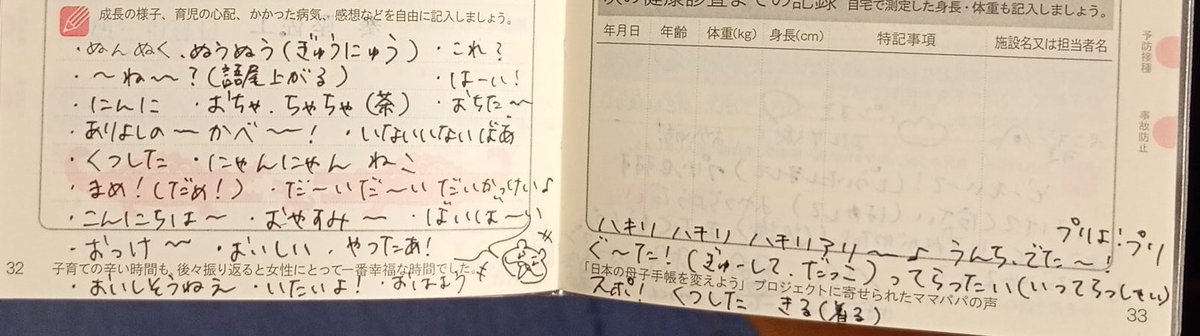 成長の様子、育児の心配、かかった病気、感想などを自由に記入しましょう。
・ぬんぬく、ぬうぬう(ぎゅうにゅう) ・これ?
・〜ね〜?(語尾上がる) ・はーい!
・にんに ・おちゃ、ちゃちゃ(茶) ・おちた〜
・ありよしの〜かべ〜! ・いないいないばあ
・くつした ・にゃんにゃん ねこ
・まめ!(だめ!) ・だ〜いだ〜い だいかっけい♪
・こんにちは〜 ・おやすみ〜 ・ばいば〜い
・おっけ〜 ・おいしい、やったあ!
32 子育ての辛い時間も、後々振り返ると女性にとって一番幸福な時間でした。
・おいしそうねえ ・いたいよ! おはよう
次の健康診査までの記録 自宅で測定した身長・体重も記入しましょう。
年月日 年齢 体重(kg) 身長(cm) 特記事項 施設名又は担当者名
予防接種
事故防止
プリよ!プリ
ハキリ ハキリ ハキリアリ〜♪ うんち、でた〜!
ぐ〜た!(ぎゅーして、だっこ)ってらったい(いってらっしゃい)
「日本の母子手帳を変えよう」プロジェクトに寄せられたママパパの声
スポ! くつした きる(着る)
33